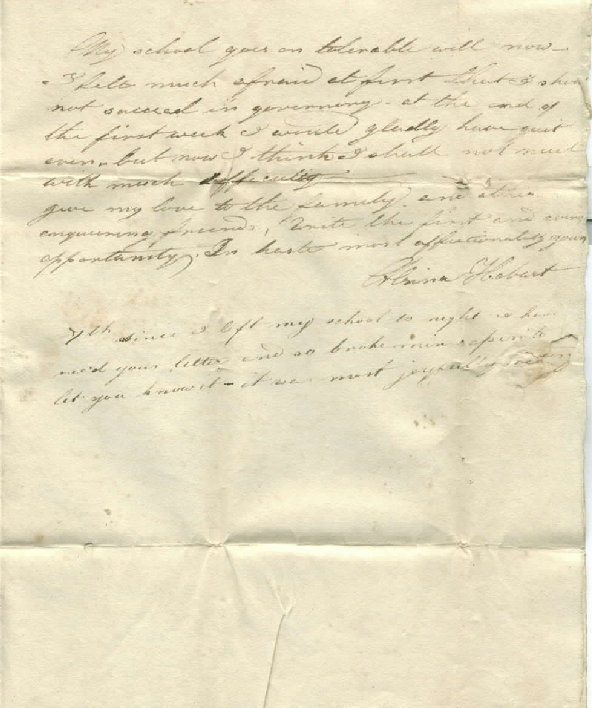 My school goes on tolerable well now -
I felt much afraid at first that I should
not succeed in governing - at the end of
the first week I would gladly have quit
even, but now I think I shall not meet
with much difficulty
give my love to the family, and other
enquireing friends, write the first and every
opportunity, In haste most affectionately yours
Hobart
7th since I left my school to night I have
rec'd your letter and so broke my
let you know it - it was most joyfull